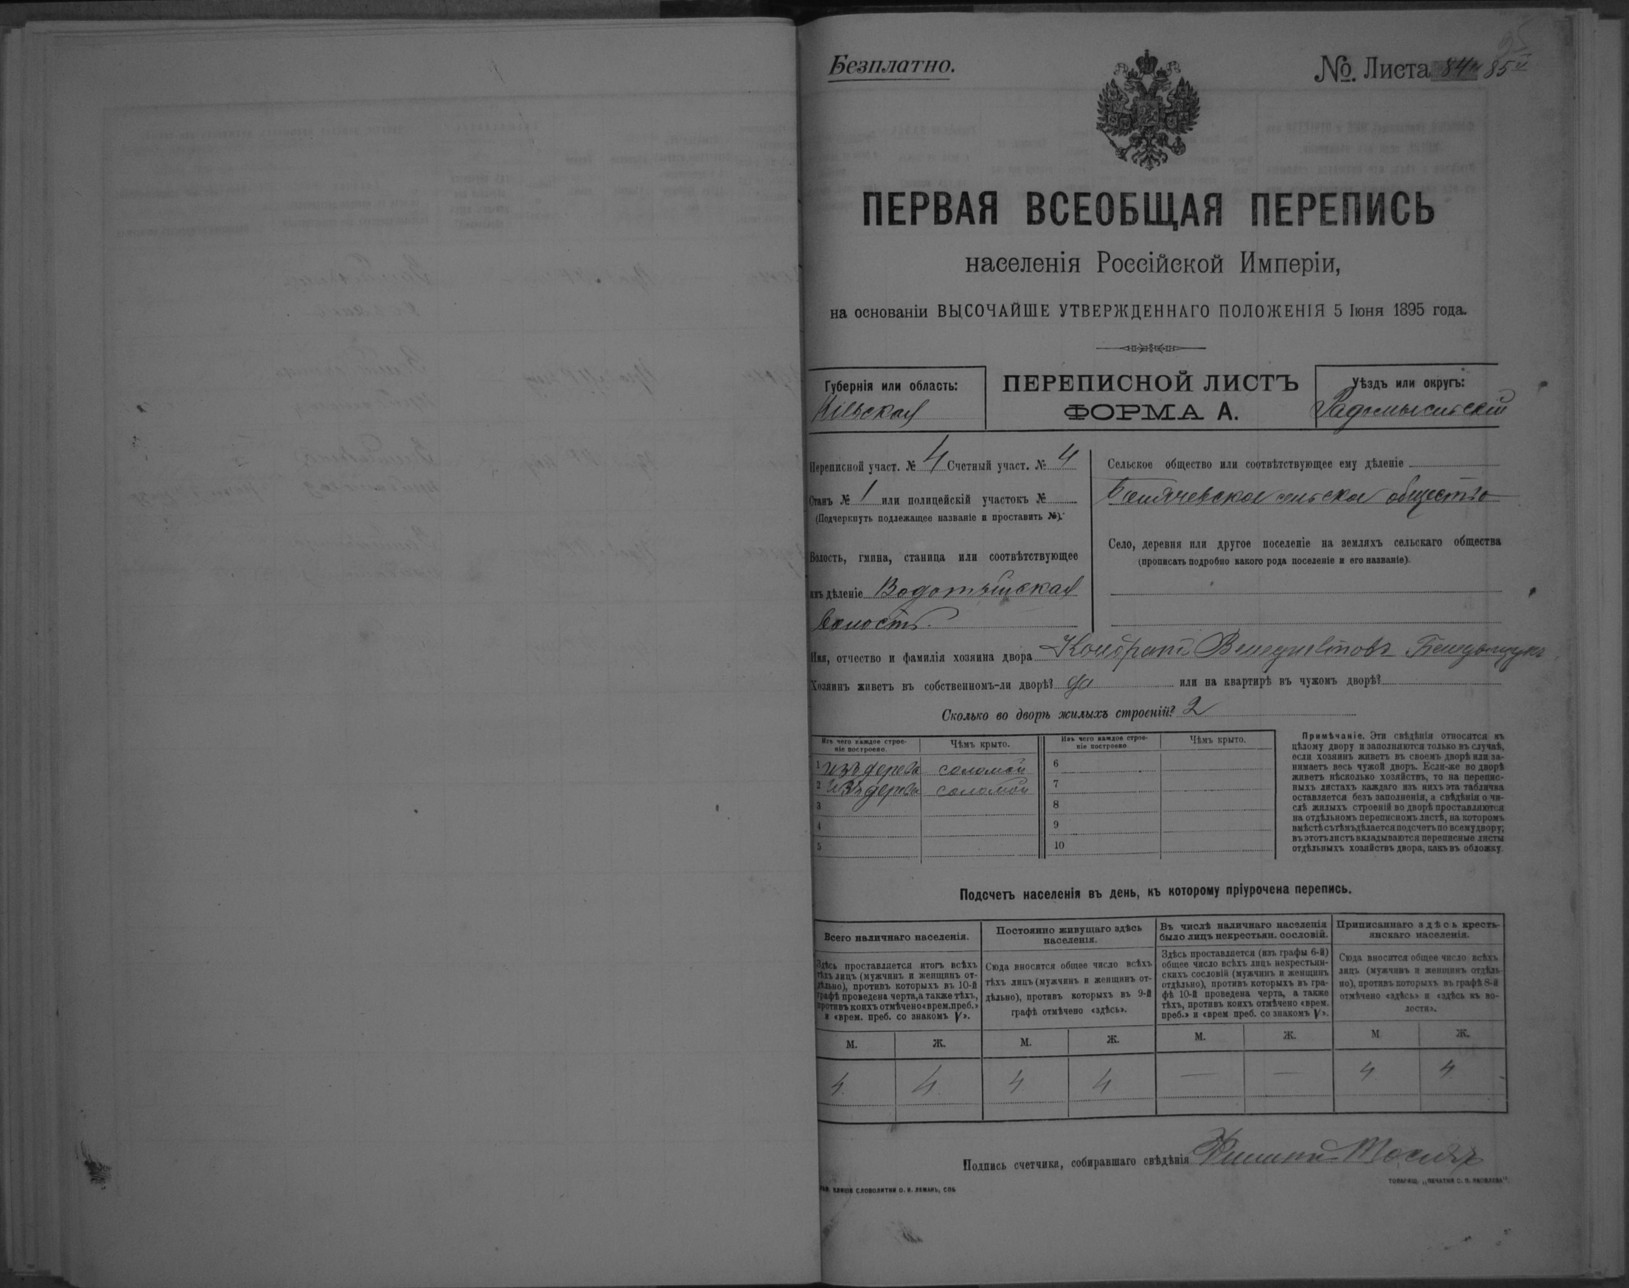 Безплатно.
№. Листа 84й 85й
ПЕРВАЯ ВСЕОБЩАЯ ПЕРЕПИСЬ
населенія Россійской Имперіи,
на основаніи ВЫСОЧАЙШЕ УТВЕРЖДЕННАГО ПОЛОЖЕНІЯ 5 Іюня 1895 года.
Губернія или область:
Кіевская
ПЕРЕПИСНОЙ ЛИСТЪ
ФОРМА А.
Уѣздъ или округъ:
Радомысльскій
Переписной участ. № 4 Счетный участ. № 4
Станъ № 1 или полицейскій участокъ №
(Подчеркнуть подлежащее названіе и проставить №).
Волость, гмина, станица или соотвѣтствующее
имъ дѣленіе Водотыйская
волость.
Сельское общество или соотвѣтствующее ему дѣленіе
сельское общество
Село, деревня или другое поселеніе на земляхъ сельскаго общества
(прописать подробно какого рода поселеніе и его названіе).
Имя, отчество и фамилія хозяина двора Кондратъ
Хозяинъ живетъ въ собственномъ-ли дворѣ? да или на квартирѣ въ чужомъ дворѣ?
Сколько во дворѣ жилыхъ строеній? 2
Изъ чего каждое строе-
ніе построено.
Чѣмъ крыто.
1 изъ дерева соломой
2 изъ дерева соломой
3
4
5
Изъ чего каждое строе-
ніе построено.
Чѣмъ крыто.
6
7
8
9
10
Примѣчаніе. Эти свѣдѣнія относятся къ
цѣлому двору и заполняются только въ случаѣ,
если хозяинъ живетъ въ своемъ дворѣ или за-
нимаетъ весь чужой дворъ. Если-же во дворѣ
живетъ нѣсколько хозяйствъ, то на перепис-
ныхъ листахъ каждаго изъ нихъ эта табличка
оставляется безъ заполненія, а свѣдѣнія о чи-
слѣ жилыхъ строеній во дворѣ проставляются
на отдѣльномъ переписномъ листѣ, на которомъ
вмѣстѣ съ тѣмъ дѣлается подсчетъ по всему двору;
въ этотъ листъ вкладываются переписные листы
отдѣльныхъ хозяйствъ двора, какъ въ обложку.
Подсчетъ населенія въ день, къ которому пріурочена перепись.
Всего наличнаго населенія.
Здѣсь проставляется итогъ всѣхъ
тѣхъ лицъ (мужчинъ и женщинъ от-
дѣльно), противъ которыхъ въ 10-й
графѣ проведена черта, а также тѣхъ,
противъ коихъ отмѣчено «врем. преб.»
и «врем. преб. со знакомъ V».
М. Ж.
4 4
Постоянно живущаго здѣсь
населенія.
Сюда вносится общее число всѣхъ
тѣхъ лицъ (мужчинъ и женщинъ от-
дѣльно), противъ которыхъ въ 9-й
графѣ отмѣчено «здѣсь».
М. Ж.
4 4
Въ числѣ наличнаго населенія
было лицъ некрестьян. сословій.
Здѣсь проставляется (изъ графы 6-й)
общее число всѣхъ лицъ некрестьян-
скихъ сословій (мужчинъ и женщинъ
отдѣльно), противъ которыхъ въ гра-
фѣ 10-й проведена черта, а также
тѣхъ, противъ коихъ отмѣчено «врем.
преб.» и «врем преб. со знакомъ V».
М. Ж.
— —
Приписаннаго здѣсь кресть-
янскаго населенія.
Сюда вносится общее число всѣхъ
лицъ (мужчинъ и женщинъ отдѣль-
но), противъ которыхъ въ графѣ 8-й
отмѣчено «здѣсь» и «здѣсь въ во-
лости».
М. Ж.
4 4
Подпись счетчика, собиравшаго свѣдѣнія Филиппъ
СЛОВОЛИТНИ О. И. ЛЕМАНЪ, СПБ
ТОВАРИЩ. „ПЕЧАТНЯ С. П. ЯКОВЛЕВА“.